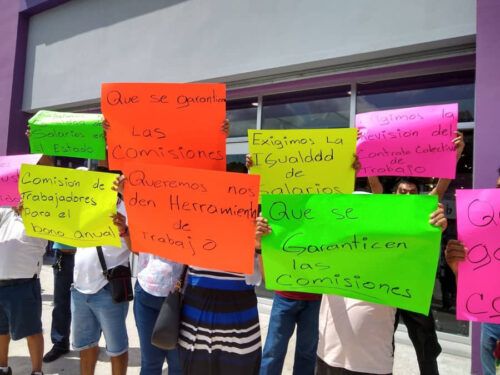 Salarios en todos
el Estado
Que se garanticen
Las
Comisiones
Exigimos La
Igualddd
de
Salarios
Exigimos La
Revisión del
Contrato Colectivo
de Trabajo
Comisión de
Trabajadores
Para el
bono anual
Queremos nos
den Herramientas
de
Trabajo
Que se
Garanticen
las
Comisiones
Que
ga
Co